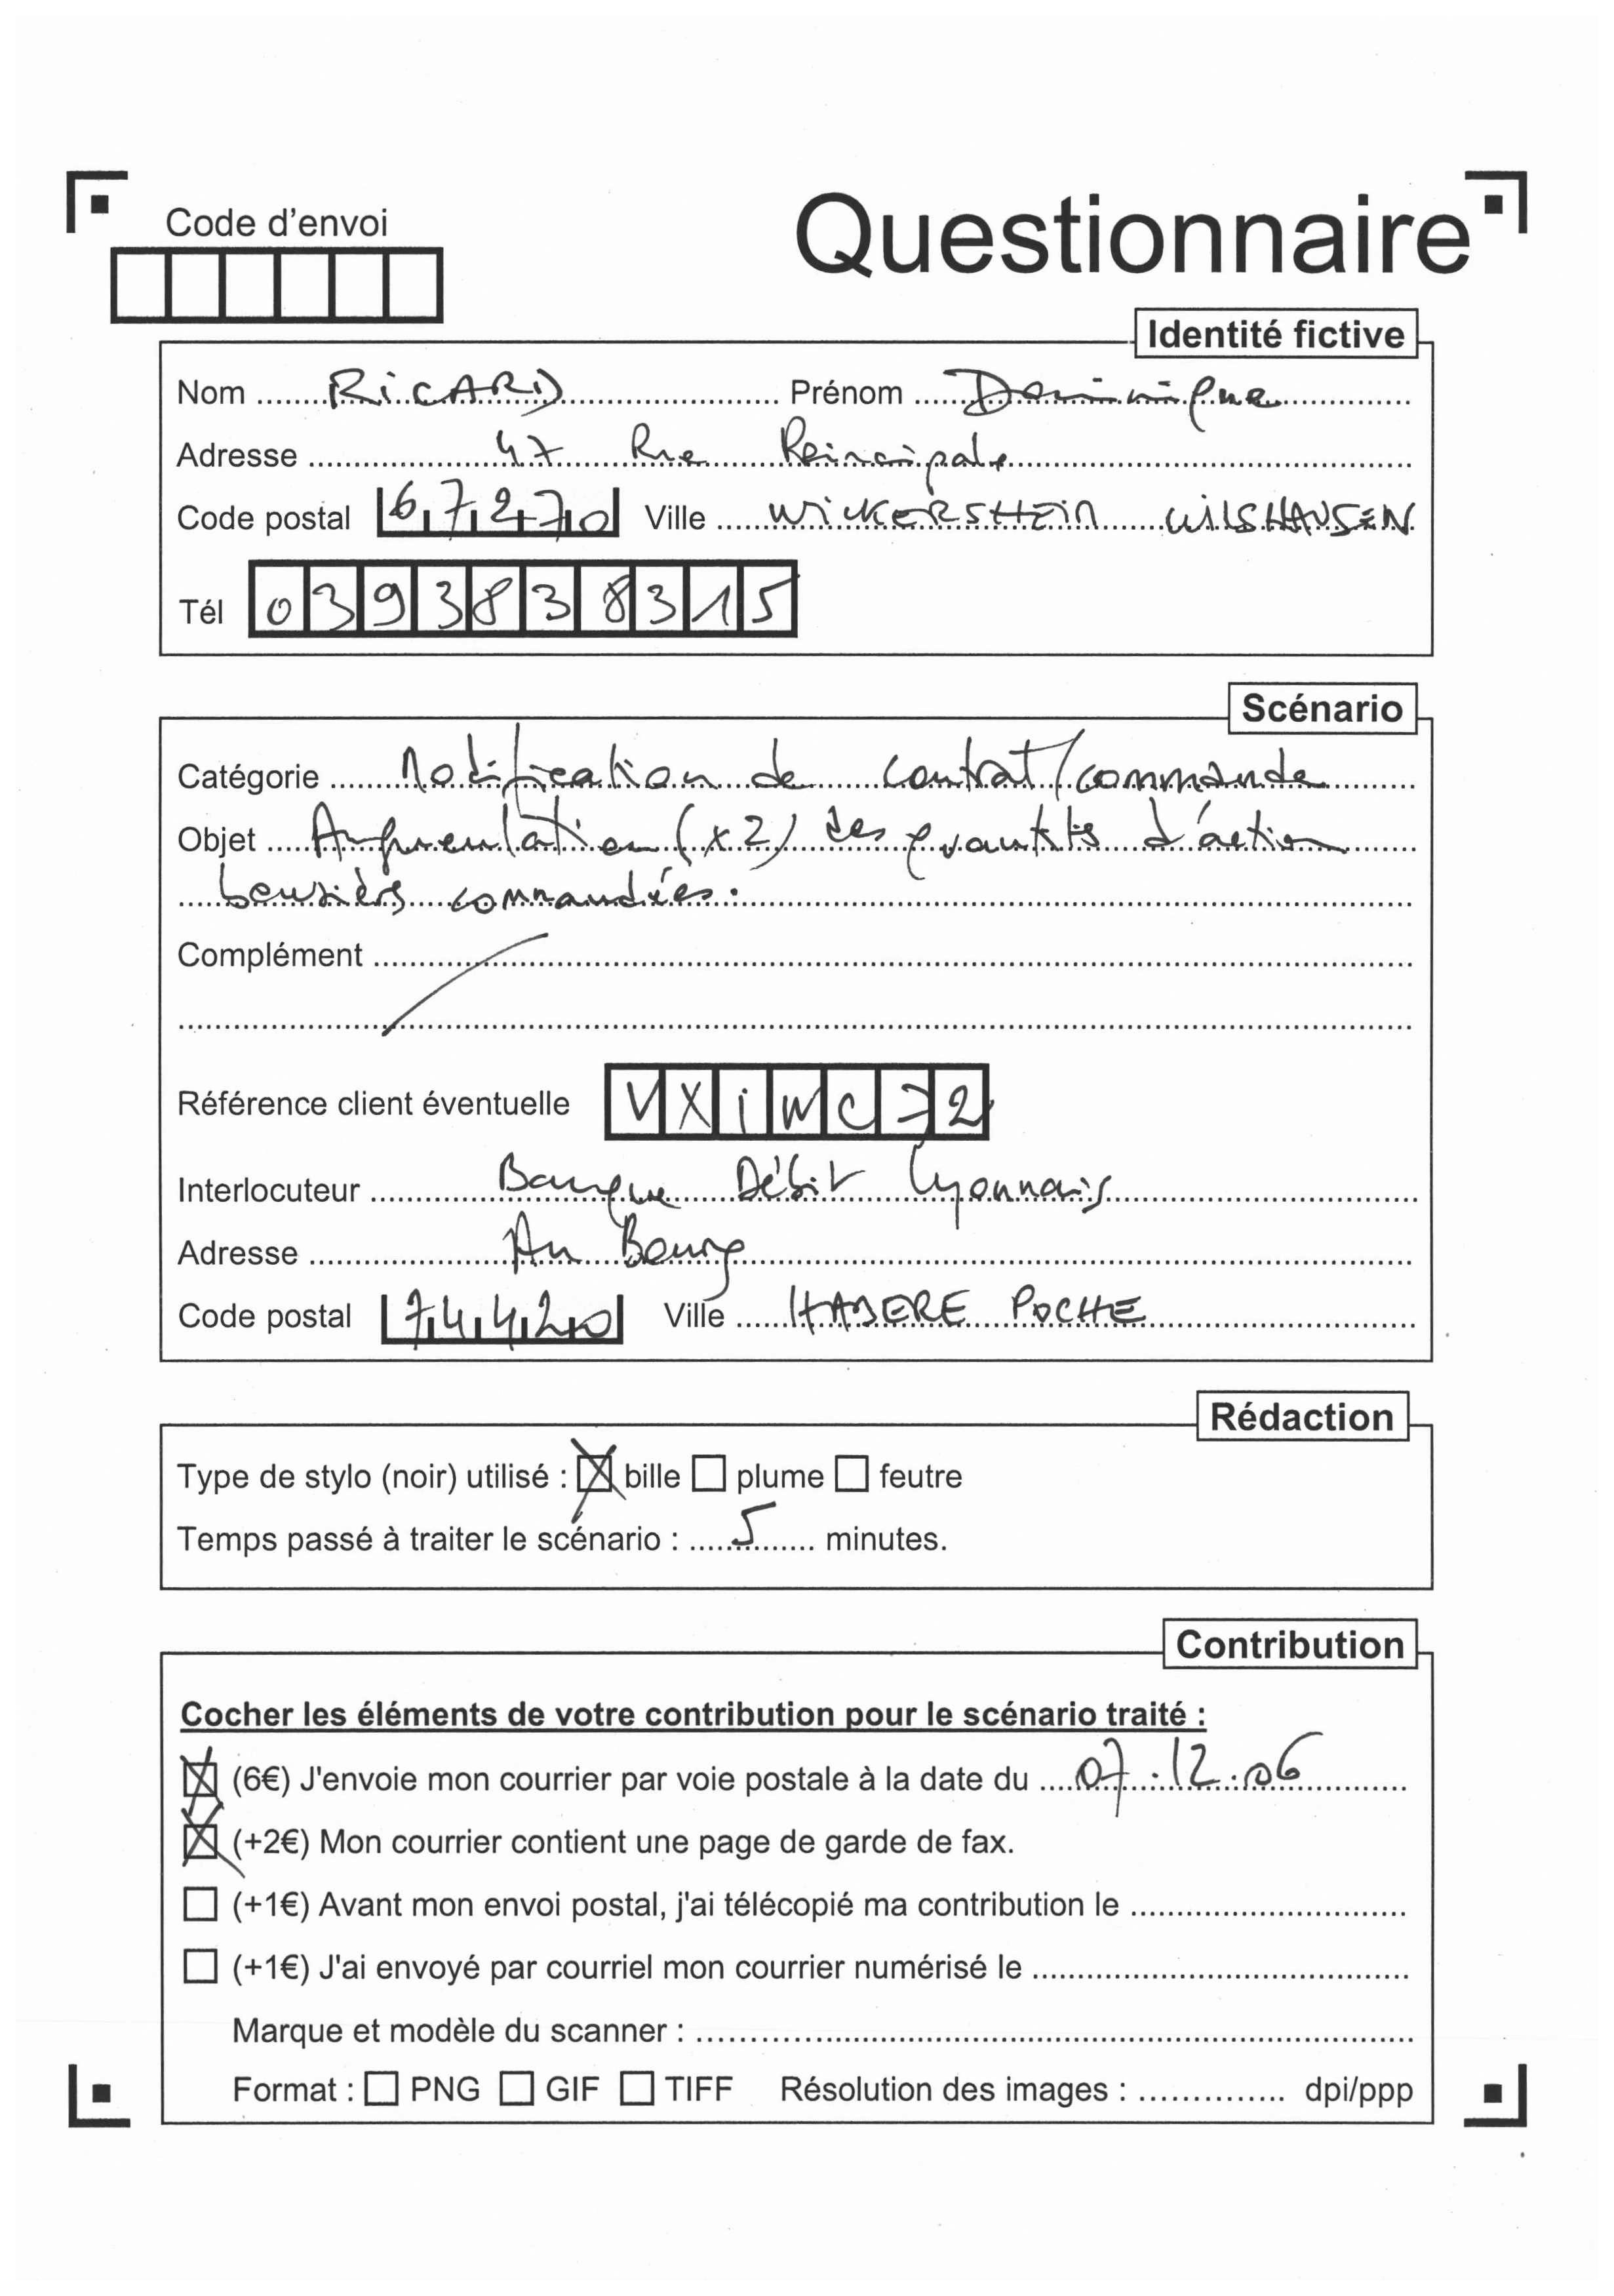 Code d'envoi
Questionnaire
Identité fictive
Nom RiCARD Prénom Dominique
Adresse 47 Rue Principale
Code postal 67270 Ville WiCKERSHEIM WILSHAUSEN
Tél 0393838315
Scénario
Catégorie Modification de contrat/commande
Objet Augmentation (x2) des quantités d'action
boursières commandées.
Complément
Référence client éventuelle VXiWC72
Interlocuteur Banque Débit Lyonnais
Adresse Au Bourg
Code postal 74420 Ville HABERE POCHE
Rédaction
Type de stylo (noir) utilisé : bille plume feutre
Temps passé à traiter le scénario : 5 minutes.
Contribution
Cocher les éléments de votre contribution pour le scénario traité :
(6€) J'envoie mon courrier par voie postale à la date du 07.12.06
(+2€) Mon courrier contient une page de garde de fax.
(+1€) Avant mon envoi postal, j'ai télécopié ma contribution le
(+1€) J'ai envoyé par courriel mon courrier numérisé le
Marque et modèle du scanner :
Format : PNG GIF TIFF Résolution des images : dpi/ppp